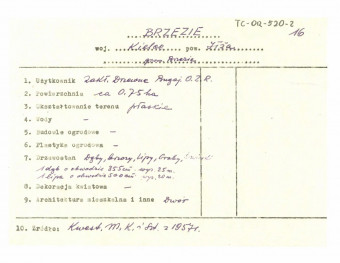 TC-OQ-530-2
BRZEZIE 16
woj. Kielce pow. Iłża
1. Użytkownik Zakł. Drzewne
2. Powierzchnia ca 0.75 ha
3. Ukształtowanie terenu płaskie
4. Wody –
5. Budowle ogrodowe –
6. Plastyka ogrodowa –
7. Drzewostan Dęby, brzozy, lipy, Graby,
1 dąb o obwodzie 355 cm wys. 25 m.
1 lipa o obwodzie 500 cm wys. 22 m.
8. Dekoracja kwiatowa –
9. Architektura mieszkalna i inne Dwór
10. Źródło: Kwest. M. K. i Szt. z 1957 r.